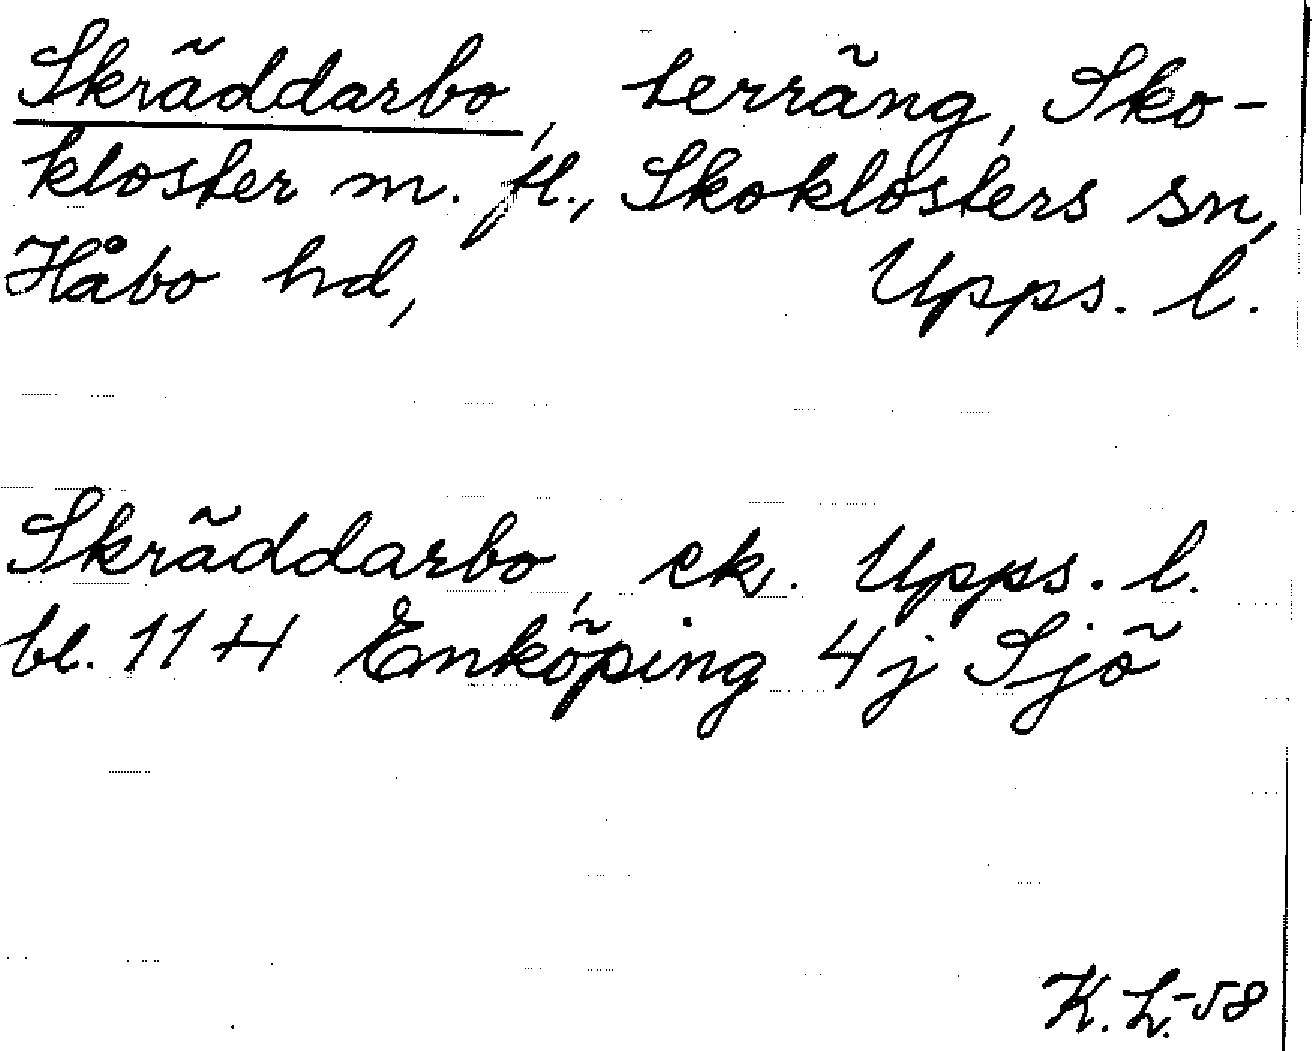 Skräddarbo, terräng, Sko-
kloster m. fl., Skoklosters sn,
Håbo hd, Upps. l.
Skräddarbo, ek. Upps. l.
bl. 11 H Enköping 4j Sjö
K. L. -58